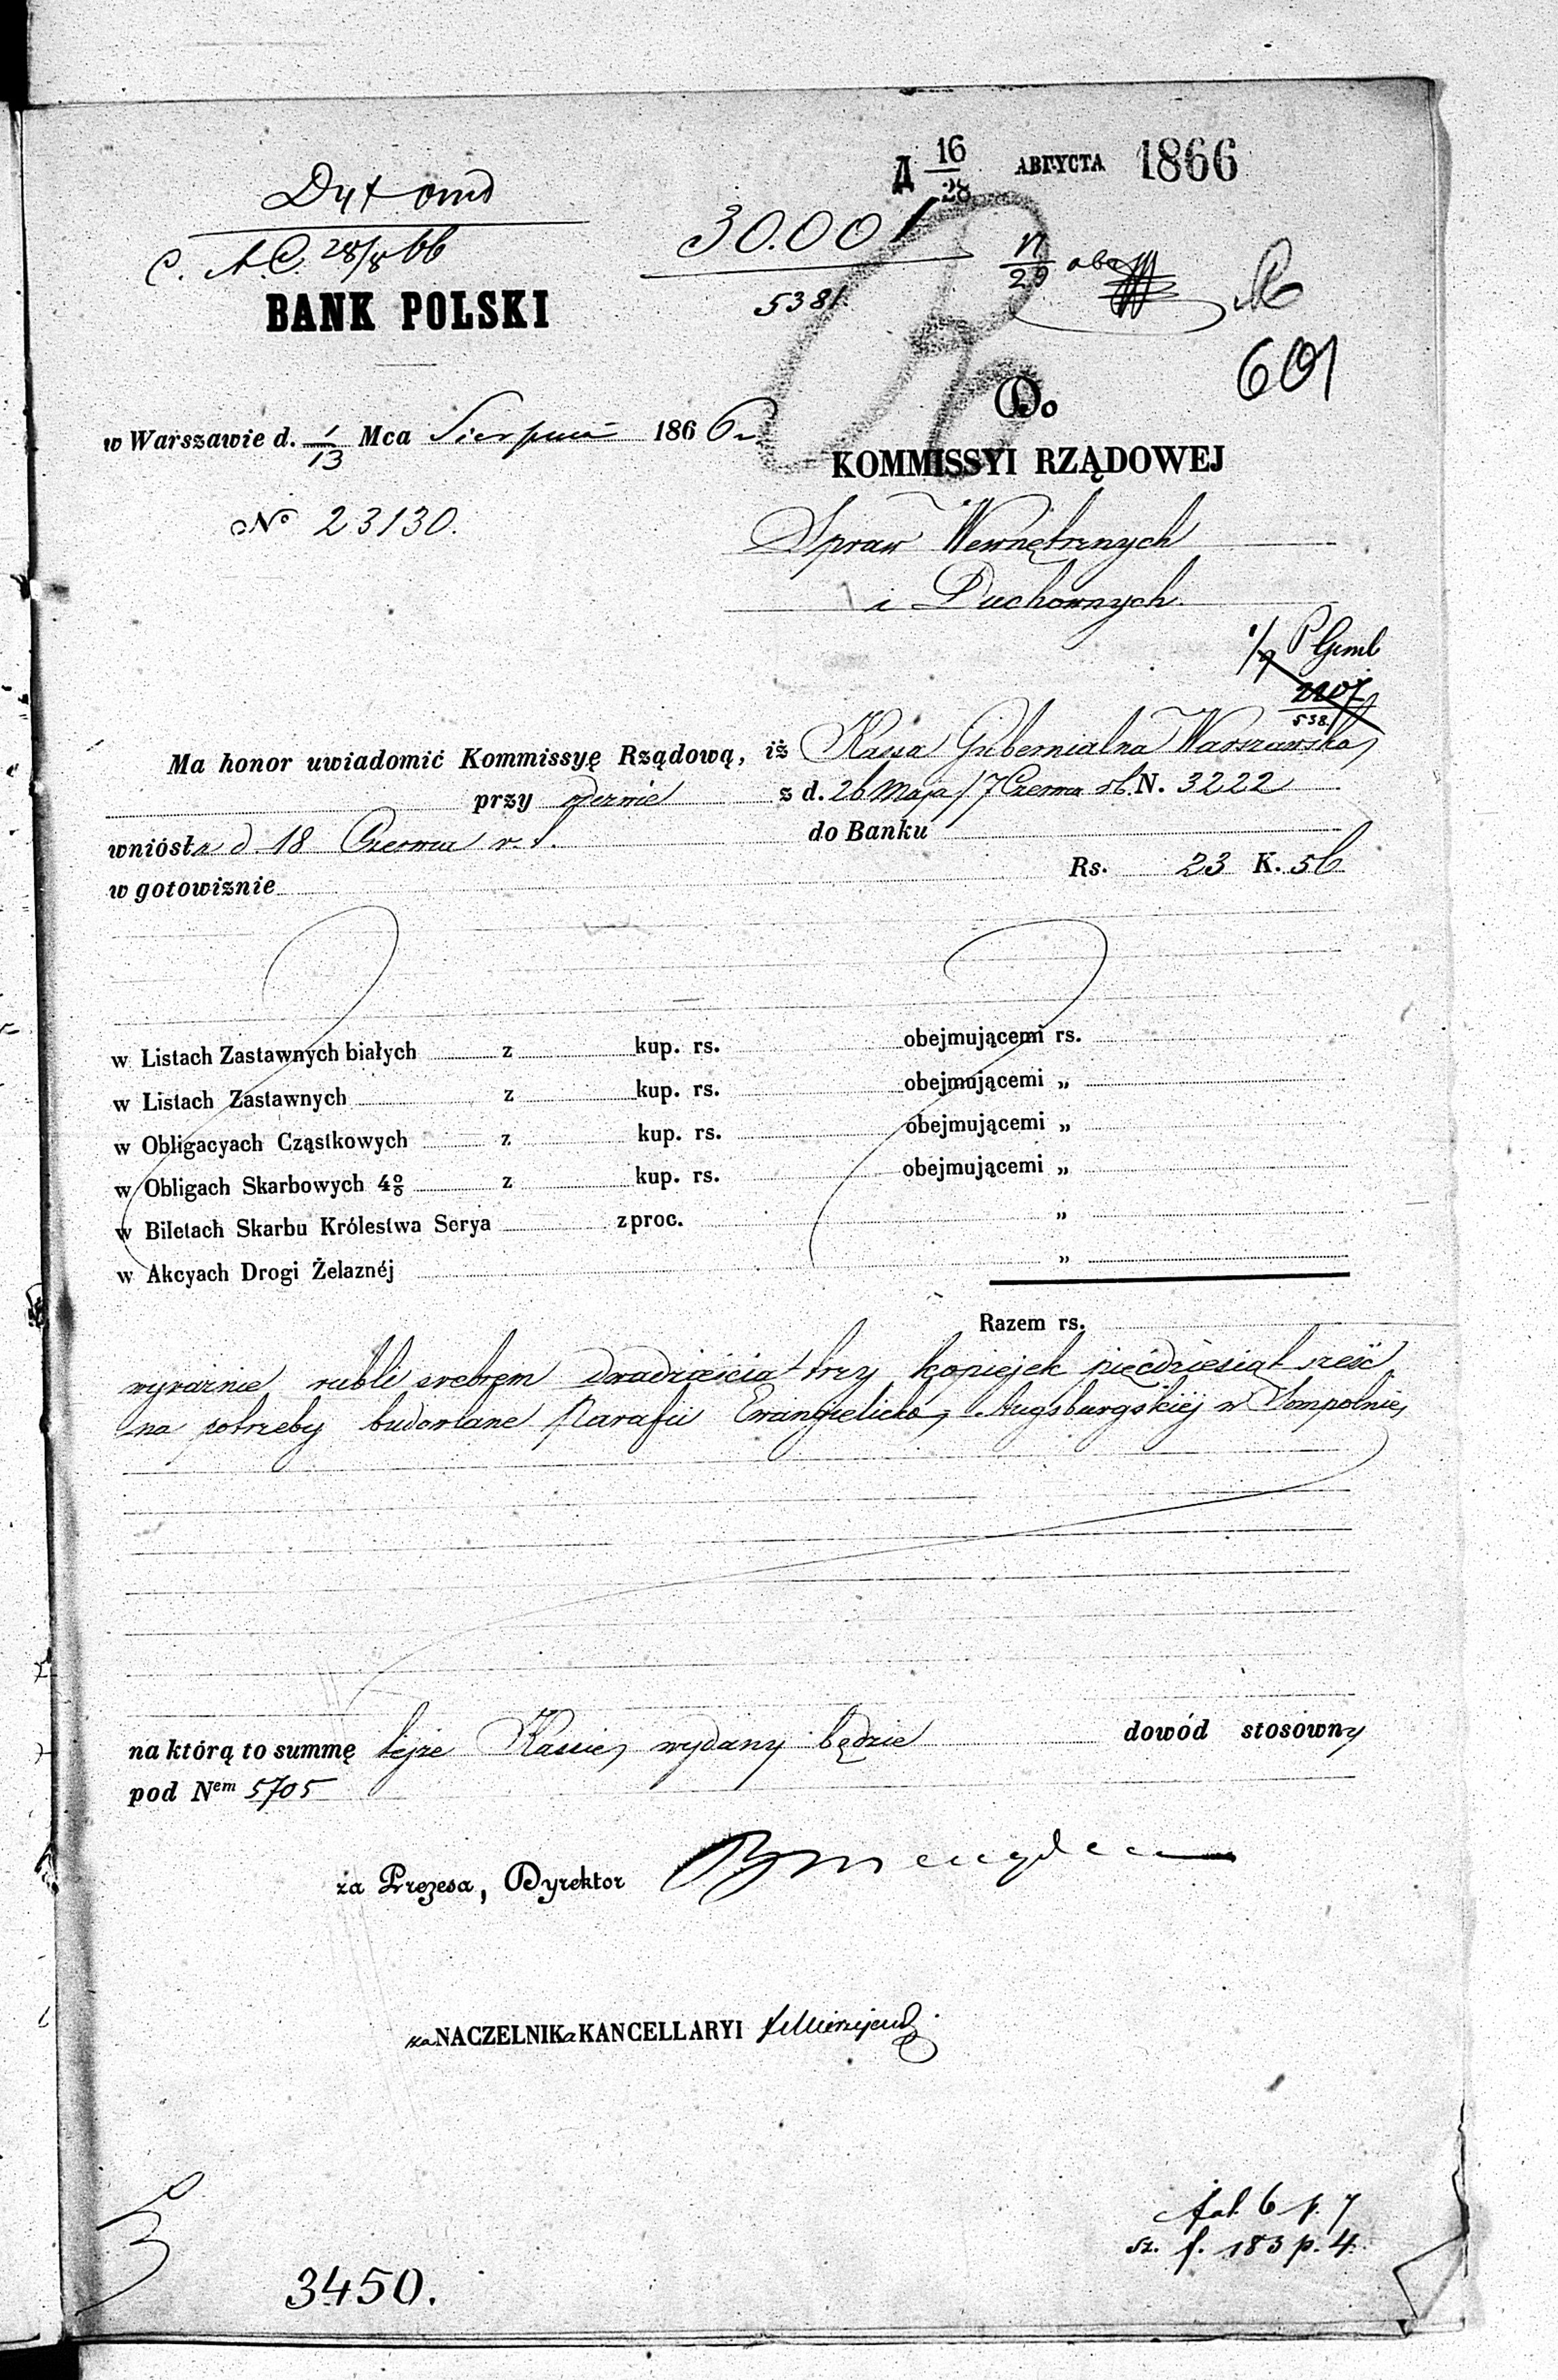 Д 16/28 АВГУСТА 1866
C. A.C. 28/8 66
30.001
5381.
17/29
BANK POLSKI
601
Do
w Warszawie d. 1/13 Mca Sierpnia 1866 r.
KOMMISSYI RZĄDOWEJ
No 23130.
Spraw Wewnętrznych
i Duchownych.
2207
538.
Ma honor uwiadomić Kommissyę Rządową, iż Kassa Gubernialna Warszawska,
przy z d. 26 Maja / 7 Czerwca N. 3222
wniósła d. 18 Czerwca r. b. do Banku
w gotowiznie Rs. 23 K. 56
w Listach Zastawnych białych z kup. rs. obejmującemi rs.
w Listach Zastawnych z kup. rs. obejmującemi „
w Obligacyach Cząstkowych z kup. rs. obejmującemi „
w Obligach Skarbowych 4% z kup. rs. obejmującemi „
w Biletach Skarbu Królestwa Serya z proc. „
w Akcyach Drogi Żelaznéj „
Razem rs.
wyraźnie rubli srebrem dwadzieścia trzy kopiejek pięćdziesiąt sześć
na potrzeby budowlane Parafii Ewangielicko-Augsburgskiéj w Sompolnie,
na którą to summę tejże Kassie, wydany będzie dowód stosowny
pod Nem 5705
za Prezesa, Dyrektor
za NACZELNIKa KANCELLARYI
fol. 6 p. 7
sz. f. 183 p. 4.
3450.